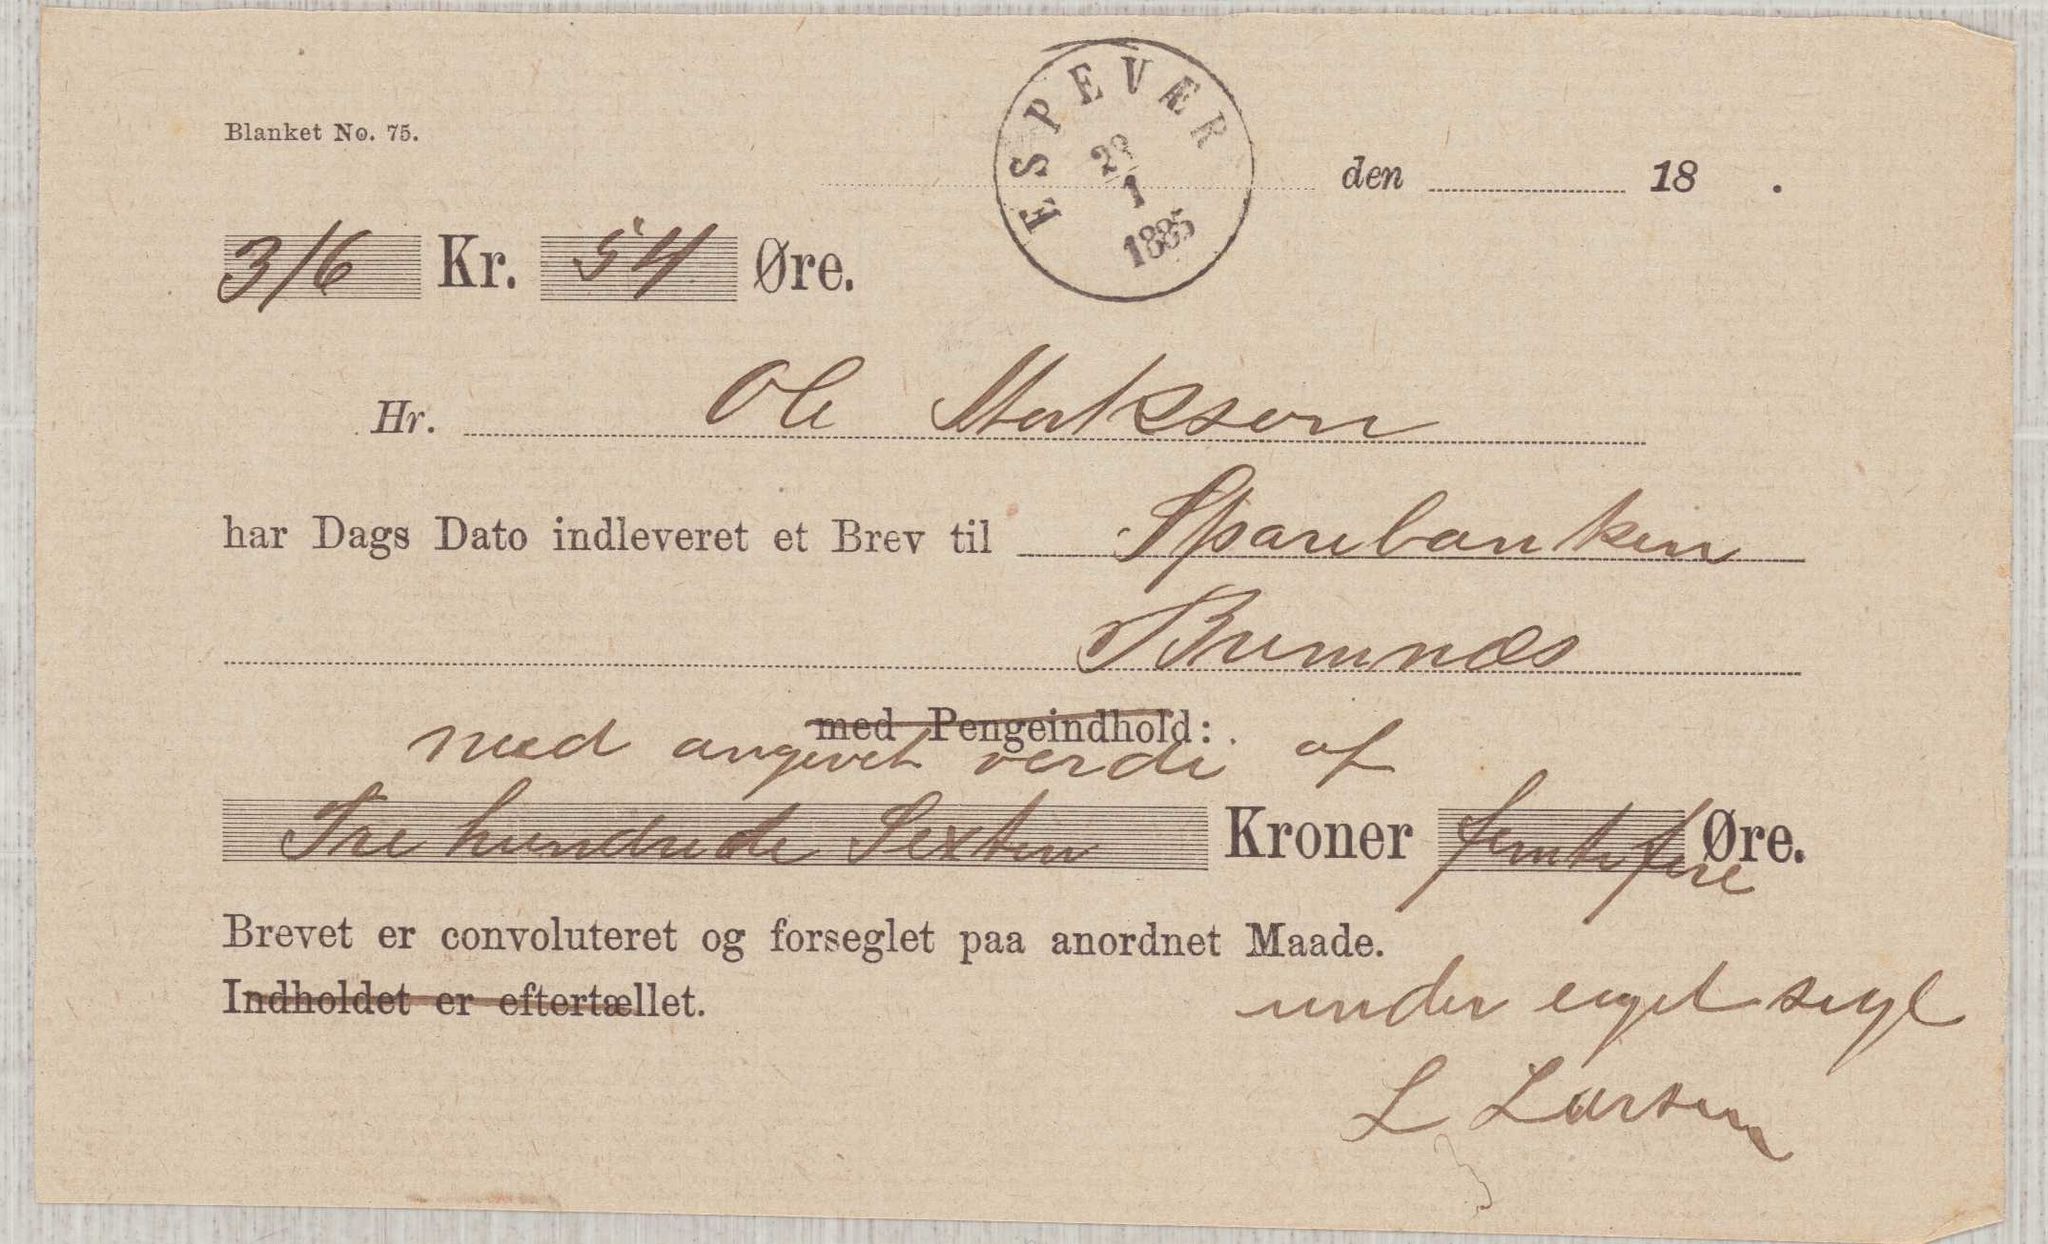 Blanket No. 75.
ESPEVÆR
1
1885
den 18 .
316 Kr. 54 Øre.
Hr. Ole
har Dags Dato indleveret et Brev til Sparebanken
Bremnæs
med Pengeindhold:
med angivet verdi af
Tre hundrede Sexten Kroner femti fire Øre.
Brevet er convoluteret og forseglet paa anordnet Maade.
Indholdet er eftertællet.
under eget segl
L Larsen